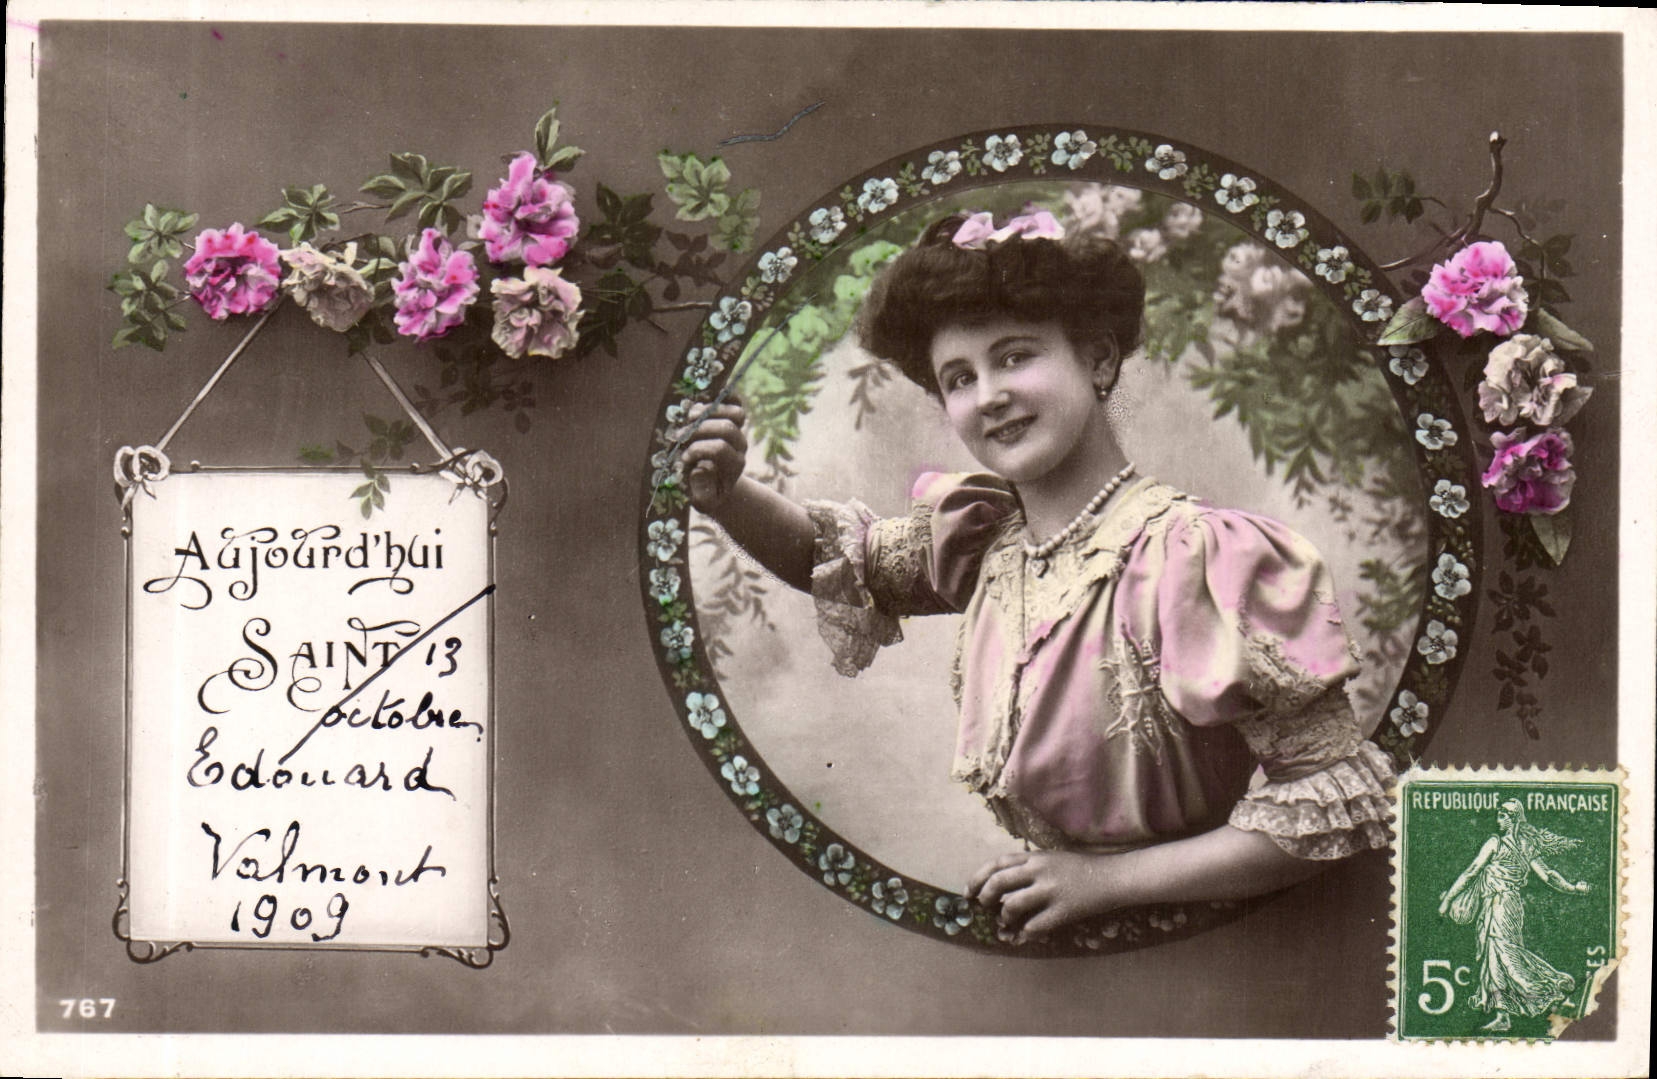 Aujourd'hui
SAINT 13
octobre
Edouard
Valmont
1909
767
REPUBLIQUE FRANÇAISE
5c